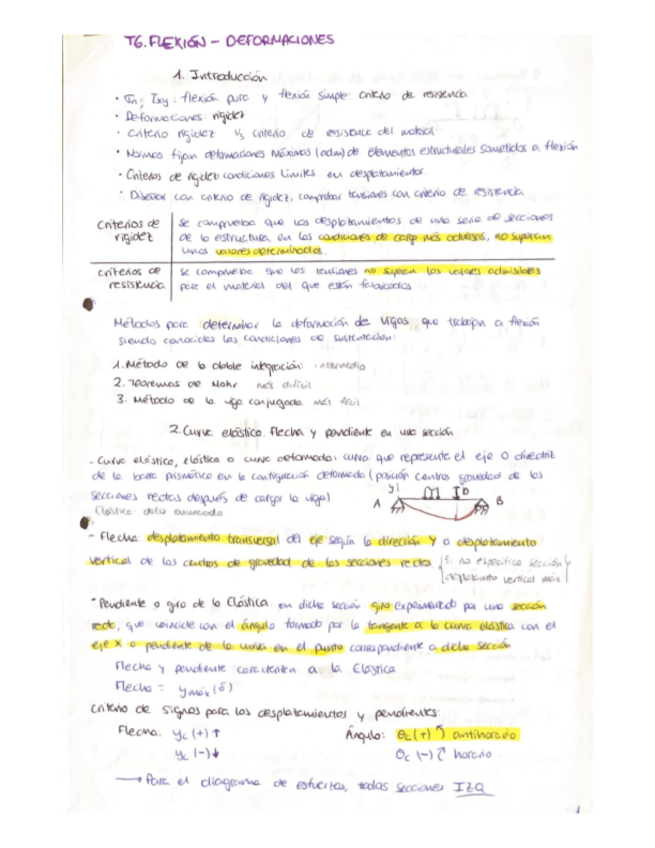 T6. FLEXIÓN - DEFORMACIONES
1. Introducción
· σn; τxy: flexión pura y flexión simple: criterio de resistencia
· Deformaciones: rigidez
· Criterio rigidez vs criterio de resistencia del material
· Normas fijan deformaciones máximas (adm) de elementos estructurales sometidos a flexión
· Criterios de rigidez: condiciones límites en desplazamientos.
· Diseñar con criterio de rigidez, comprobar tensiones con criterio de resistencia
criterios de rigidez | se comprueba que los desplazamientos de una serie de secciones
de la estructura en las condiciones de carga más adversas, no superan
unos valores determinados.
criterios de resistencia | se comprueba que las tensiones no superan los valores admisibles
para el material del que están fabricados
Métodos para determinar la deformación de vigas, que trabajan a flexión
siendo conocidas las condiciones de sustentación:
1. Método de la doble integración: intermedio
2. Teoremas de Mohr más difícil
3. Método de la viga conjugada más fácil
2. Curva elástica. Flecha y pendiente en una sección
- Curva elástica, elástica o curva deformada: curva que representa el eje o directriz
de la barra prismática en la configuración deformada (posición centros gravedad de las
secciones rectas después de cargar la viga)
Elástica: dato enunciado
y A D B
- Flecha: desplazamiento transversal del eje según la dirección y o desplazamiento
vertical de los centros de gravedad de las secciones rectas
Si no especifica sección
desplazamto vertical máx
· Pendiente o giro de la Elástica en dicha sección: giro experimentado por una sección
recta, que coincide con el ángulo formado por la tangente a la curva elástica con el
eje x o pendiente de la curva en el punto correspondiente a dicha sección
Flecha y pendiente caracterizan a la Elástica
Flecha = ymáx (δ)
Criterio de signos para los desplazamientos y pendientes:
Flecha: yc (+) ↑ Ángulo: θc (+) ↶ antihorario
yc (-) ↓ θc (-) ↷ horario
→ Para el diagrama de esfuerzos, todas secciones IZQ
1